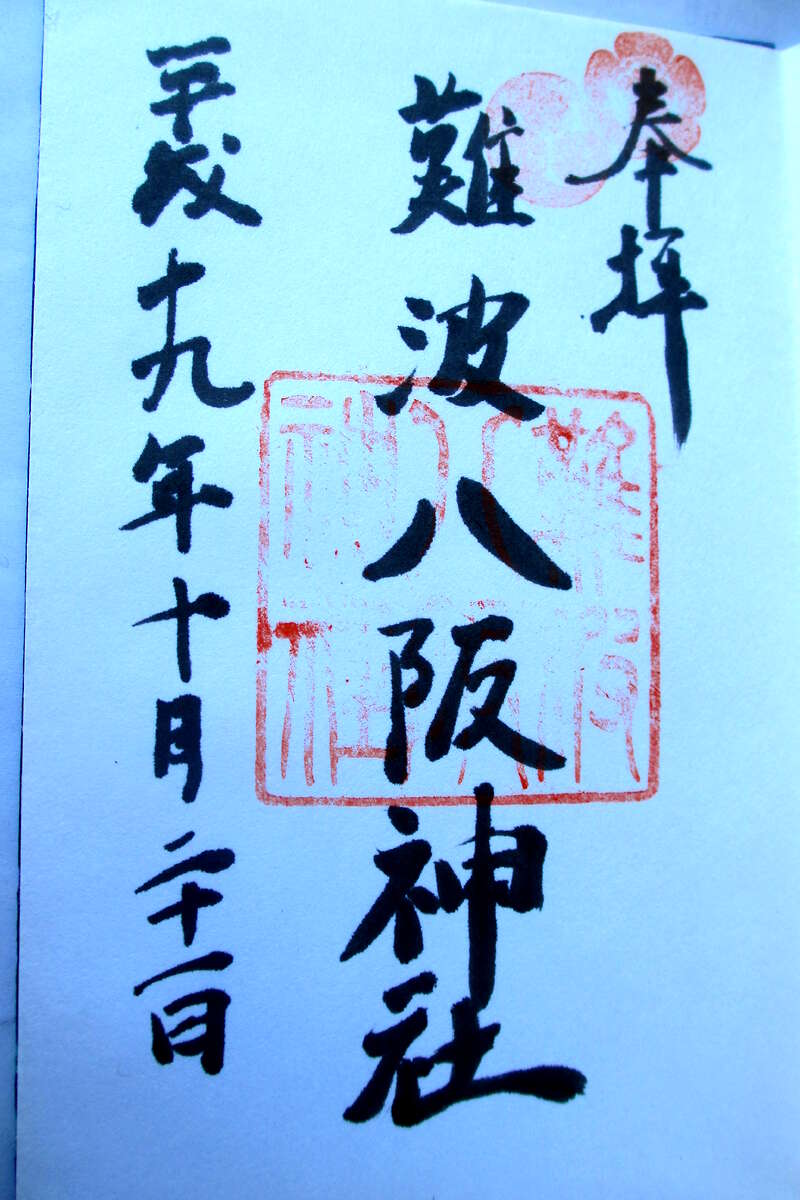 奉拝
難波八阪神社
平成十九年十月二十一日
難波八阪神社